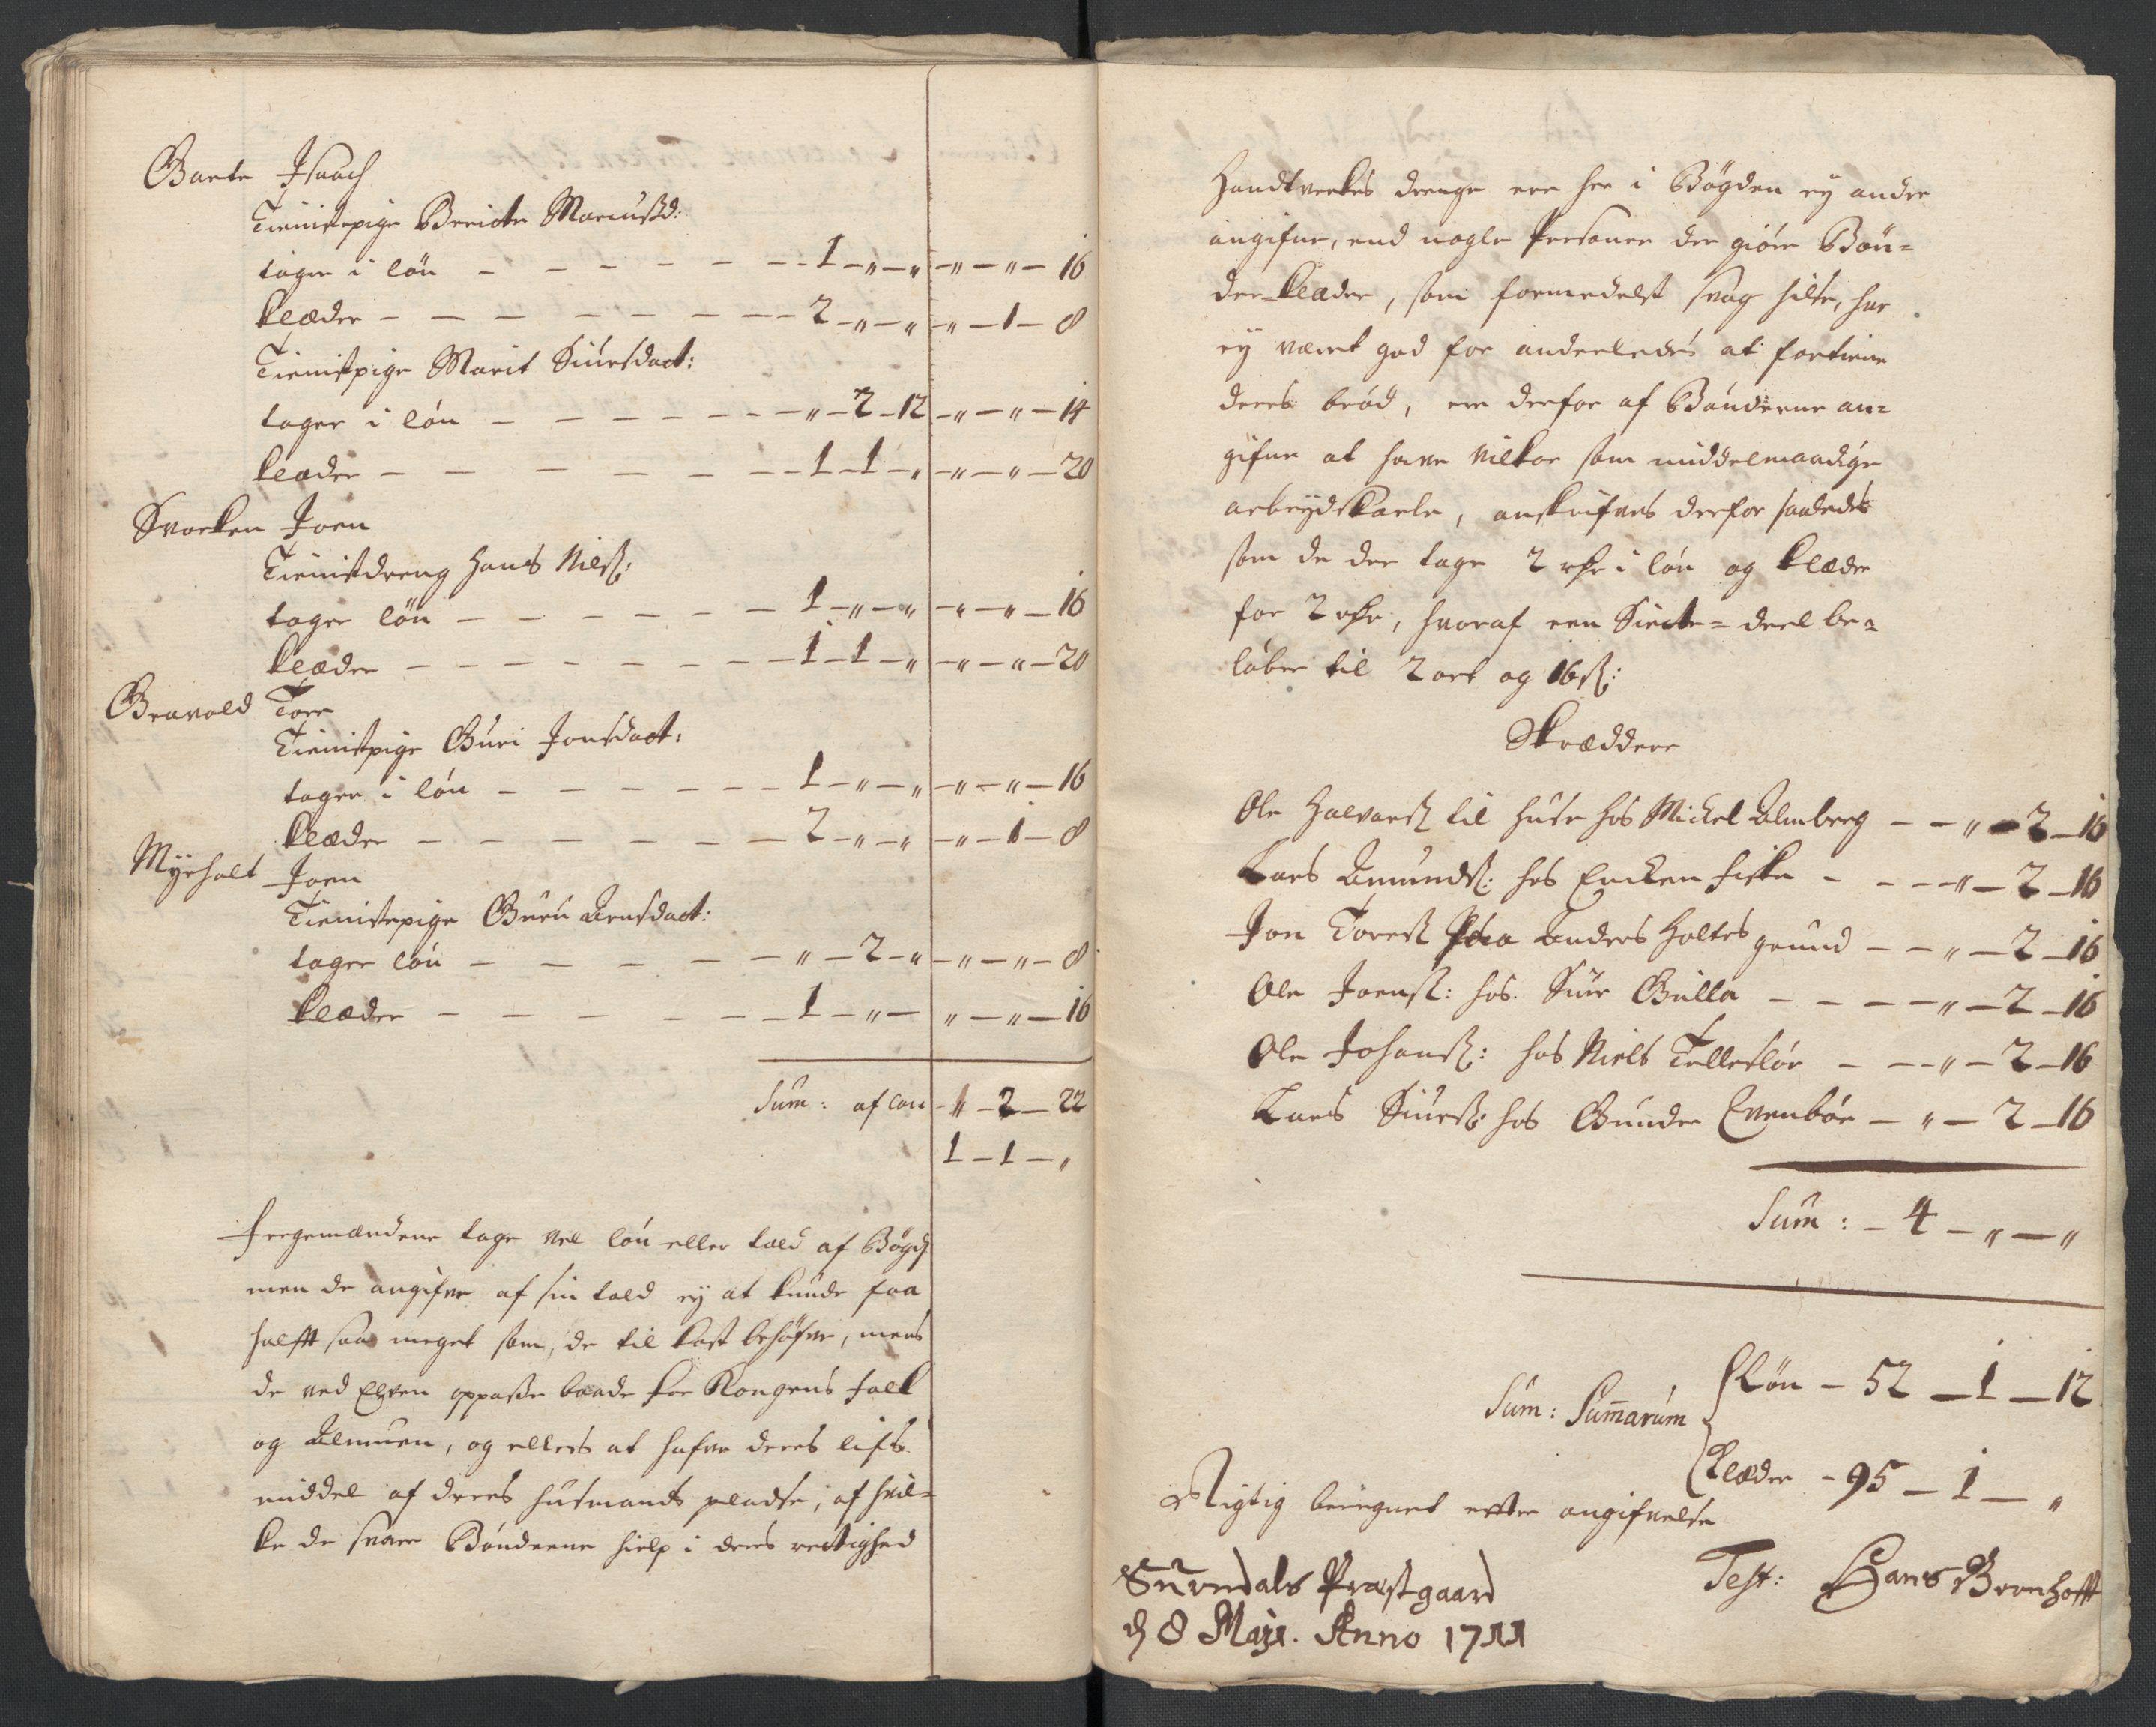 Isaach
Tienistepige Bereite Mariusd:
tager i lön – – – – – – 1 – „ – „ – „ – „ – 16
klæder – – – – – – – 2 – „ – „ – „ – 1 – 8
Tienistpige Marit Siursdaat:
tager i lön – – – – – – „ – 2 – 12 – „ – „ – 14
klæder – – – – – – 1 – 1 – „ – „ – „ – 20
Svorken Joen
Tienistdreng Hans Nilß:
tager lön – – – – – – 1 – „ – „ – „ – „ – 16
klæder – – – – – – – 1 – 1 – „ – „ – „ – 20
Tore
Tienistpige Guri Jonsdaat:
tager i lön – – – – – – 1 – „ – „ – „ – „ – 16
klæder – – – – – – – 2 – „ – „ – „ – 1 – 8
Myrholt Joen
Tienistepige Guru Arnsdaat:
tager lön – – – – – „ – 2 – „ – „ – „ – 8
klæder – – – – – – 1 – „ – „ – „ – 16
Sum: af lön – „ – 2 – 22
1 – 1 – „
Fergemændene tage vel lön eller told af Bögd
men de angifve af sin told ey at kunde faa
halfft saa meget som, de til kost behöfve, mens
de ved Elven oppasse baade for Kongens folk
og Almuen, og ellers at hafve deres lifs
middel af deres husmands pladse, af hvil-
ke de svare Bönderne hielp i deres rettighed
Handtverkes drenge ere her i Bögden ey andre
angifne, end nogle Personer der giöre Bön-
der-klæder, som formedelst svag hilse, har
ey været god for anderledes at fortiene
deres bröd, ere derfor af Bönderne an-
gifne at have vilkor som middelmaadige
arbeydskarle, anskrifves derfor saaledes
som de der tage 2 rdr i lön og klæder
for 2 rdr, hvoraf een Siette-deel be-
löber til 2 ort og 16 ß:
Skræddere
Ole Halvorß til huse hos Michel Almberg – – „ – 2 – 16
Lars Amundß: hos Enken Fiske – – – – „ – 2 – 16
Jon Toreß paa Anders Holtes grund – – „ – 2 – 16
Ole Joenß: hos Siur Gulla – – – – „ – 2 – 16
Ole Johanß: hos Niels Telleslör – – – „ – 2 – 16
Lars Siurß: hos Gunder Evenböe – „ – 2 – 16
Sum: – 4 – „ – „
Sum: Sumarum
Lön – 52 – 1 – 12
Klæder – 95 – 1 – „
Rigtig beregnet efter angifvelse
Surendals Præstgaard
d 8 Maji. Anno 1711
Test: Hans